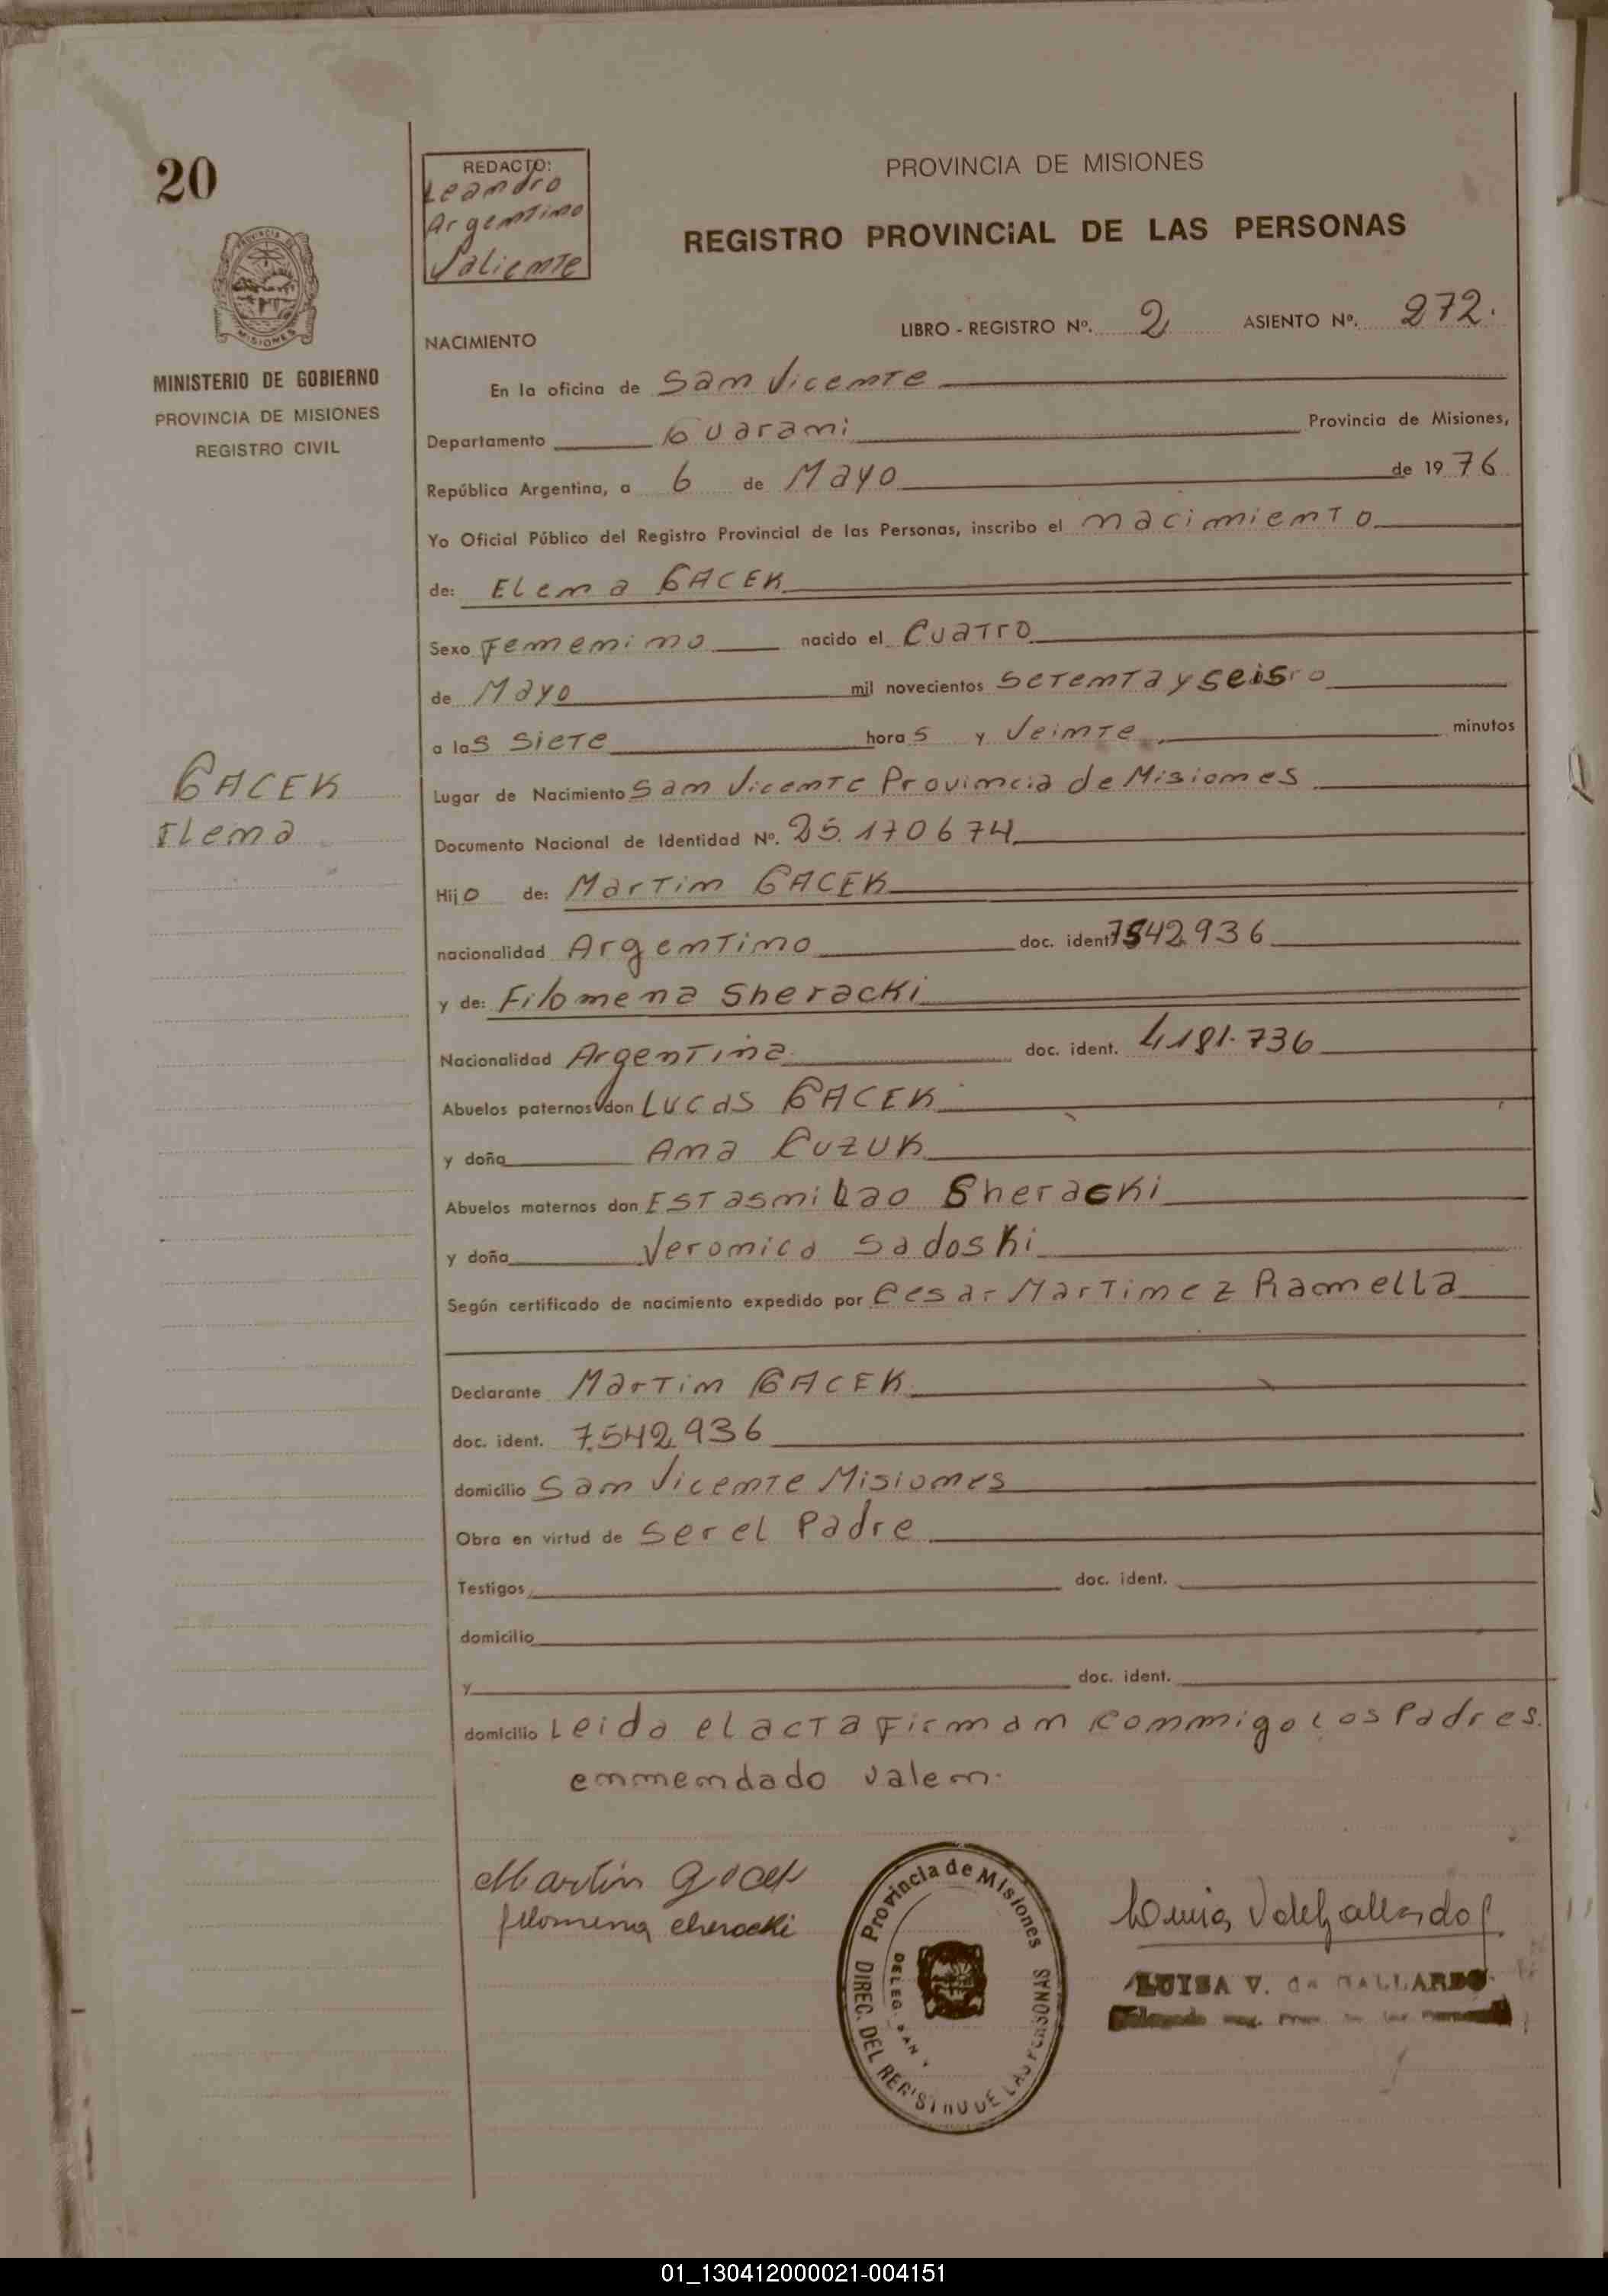 20
REDACTO:
Leandro
Argentino
Valiente
PROVINCIA DE MISIONES
REGISTRO PROVINCIAL DE LAS PERSONAS
MINISTERIO DE GOBIERNO
PROVINCIA DE MISIONES
REGISTRO CIVIL
NACIMIENTO
LIBRO - REGISTRO Nº. 2 ASIENTO Nº. 272.
En la oficina de San Vicente
Departamento Guarani Provincia de Misiones,
República Argentina, a 6 de Mayo de 1976
Yo Oficial Público del Registro Provincial de las Personas, inscribo el nacimiento
de: Elena GACEK
Sexo Femenino nacido el Cuatro
de Mayo mil novecientos setenta y seis
a las siete horas y veinte minutos
GACEK
Elena
Lugar de Nacimiento San Vicente Provincia de Misiones
Documento Nacional de Identidad Nº. 25.170674
Hijo de: Martin GACEK
nacionalidad Argentino doc. ident. 7542936
y de: Filomena Sheracki
Nacionalidad Argentina doc. ident. 4181.736
Abuelos paternos don Lucas GACEK
y doña Ana Cuzuk
Abuelos maternos don Estasnilao Sheracki
y doña Veronica Sadoski
Según certificado de nacimiento expedido por Cesar Martinez Ramella
Declarante Martin GACEK
doc. ident. 7.542.936
domicilio San Vicente Misiones
Obra en virtud de ser el Padre
Testigos doc. ident.
domicilio
y doc. ident.
domicilio Leida el acta Firman conmigo los Padres.
enmendado valen.
Martin Gacek
filomena cheracki
Provincia de Misiones
DIREC. DEL REGISTRO DE LAS PERSONAS
DELEG. SAN V
Luisa V de Gallardo
LUISA V. de GALLARDO
01_130412000021-004151